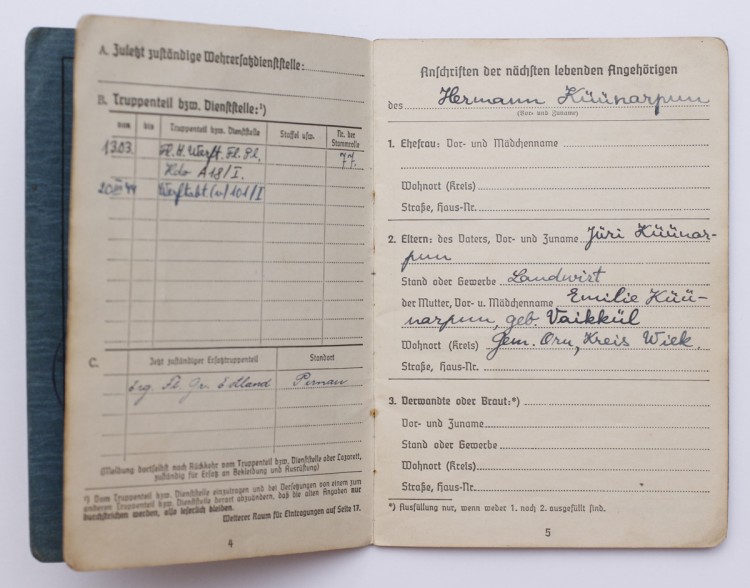 A. Zuletzt zuständige Wehrersatzdienststelle:
B. Truppenteil bzw. Dienststelle:¹)
aus bis Truppenteil bzw. Dienststelle Staffel usw. Nr. der Stammrolle
13.03. Fl. H. Werft. Fl. Pl. 77.
Kdo A 18/I.
20. III 44 101/I
C. Jetzt zuständiger Ersatztruppenteil Standort
Erg. Fl. Gr. Pernau
(Meldung dortselbst nach Rückkehr vom Truppenteil bzw. Dienststelle oder Lazarett,
zuständig für Ersatz an Bekleidung und Ausrüstung)
¹) Vom Truppenteil bzw. Dienststelle einzutragen und bei Versetzungen von einem zum
anderen Truppenteil bzw. Dienststelle derart abzuändern, daß die alten Angaben nur
durchstrichen werden, also leserlich bleiben.
Weiterer Raum für Eintragungen auf Seite 17.
4
Anschriften der nächsten lebenden Angehörigen
des Hermann Küünarpuu
(Vor- und Zuname)
1. Ehefrau: Vor- und Mädchenname
Wohnort (Kreis)
Straße, Haus-Nr.
2. Eltern: des Vaters, Vor- und Zuname Jüri Küünar-
puu
Stand oder Gewerbe Landwirt
der Mutter, Vor- u. Mädchenname Emilie Küü-
narpuu, geb. Vaikkül
Wohnort (Kreis) Gem. Oru, Kreis Wiek.
Straße, Haus-Nr.
3. Verwandte oder Braut:*)
Vor- und Zuname
Stand oder Gewerbe
Wohnort (Kreis)
Straße, Haus-Nr.
*) Ausfüllung nur, wenn weder 1. noch 2. ausgefüllt sind.
5